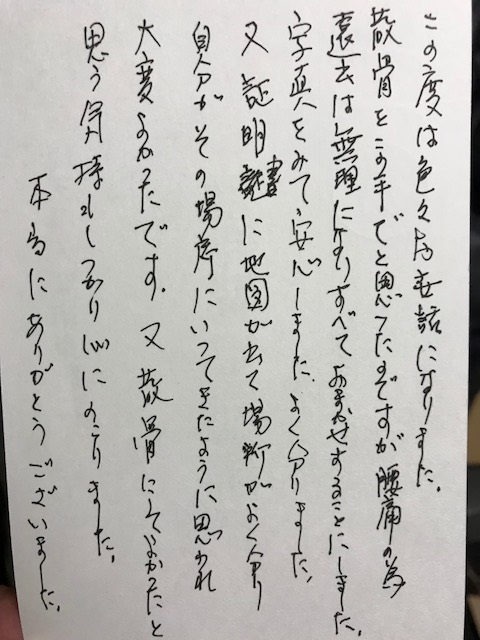 この度は色々お世話になりました。
散骨をこの手でと思ったのですが腰痛の為
遠出は無理になりすべておまかせすることにしました。
写真をみて安心しました。よく分りました。
又証明書に地図が出て場所がよく分り
自分がその場所にいってきたように思われ
大変よかったです。又散骨にしてよかったと
思う気持もしっかり心にのこりました。
本当にありがとうございました。